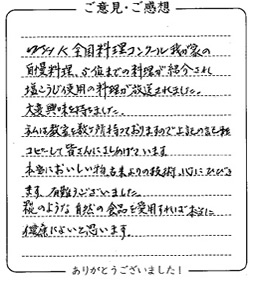 ご意見・ご感想
NHK全国料理コンクール我が家の
自慢料理、5位までの料理が紹介され
塩こうじ使用の料理が放送されました。
大変興味を持ちました。
私は教室を数ヶ所持っておりますので
コピーして皆さんにさしあげています
本当においしい糀 古来よりの技術、心にひびき
ます。有難うございました。
糀のような自然の食品を愛用すれば本当に
健康によいと思います。
ありがとうございました!